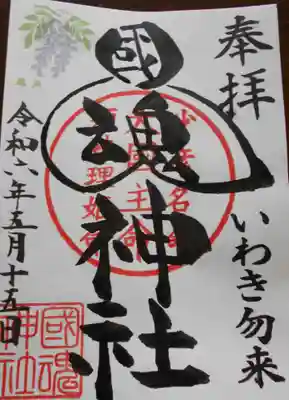 奉拝
いわき勿来
國魂神社
令和六年五月十五日
國魂
神社